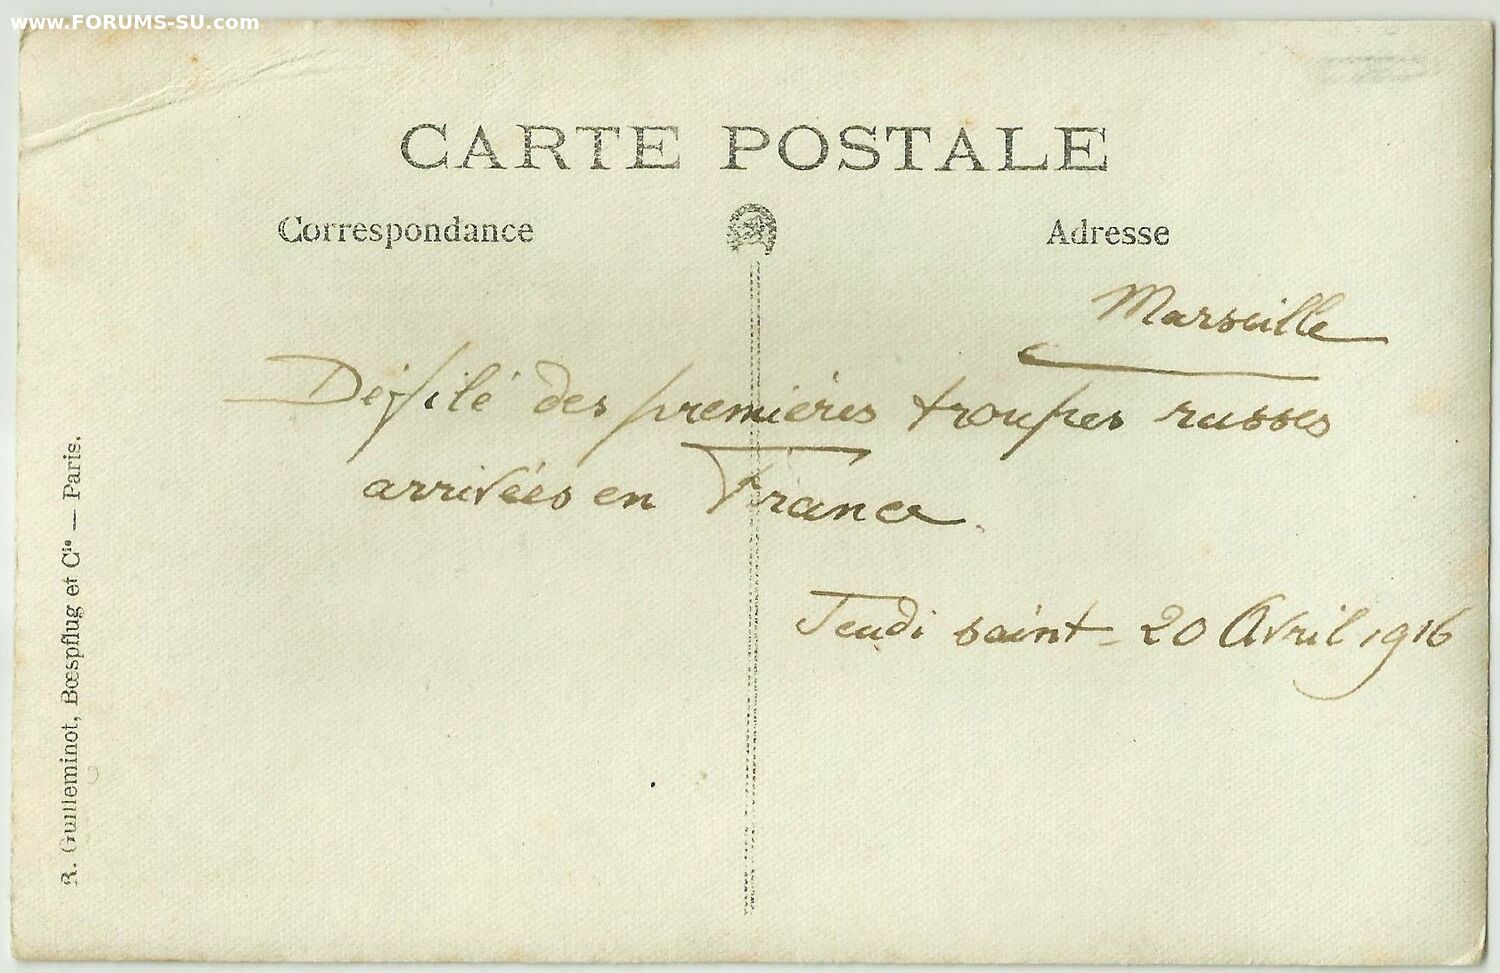 www.FORUMS-SU.com
CARTE POSTALE
Correspondance
Adresse
Marseille
Défilé des premières troupes russes
arrivées en France.
Jeudi saint - 20 Avril 1916
R. Guilleminot, Bœspflug et Cie — Paris.